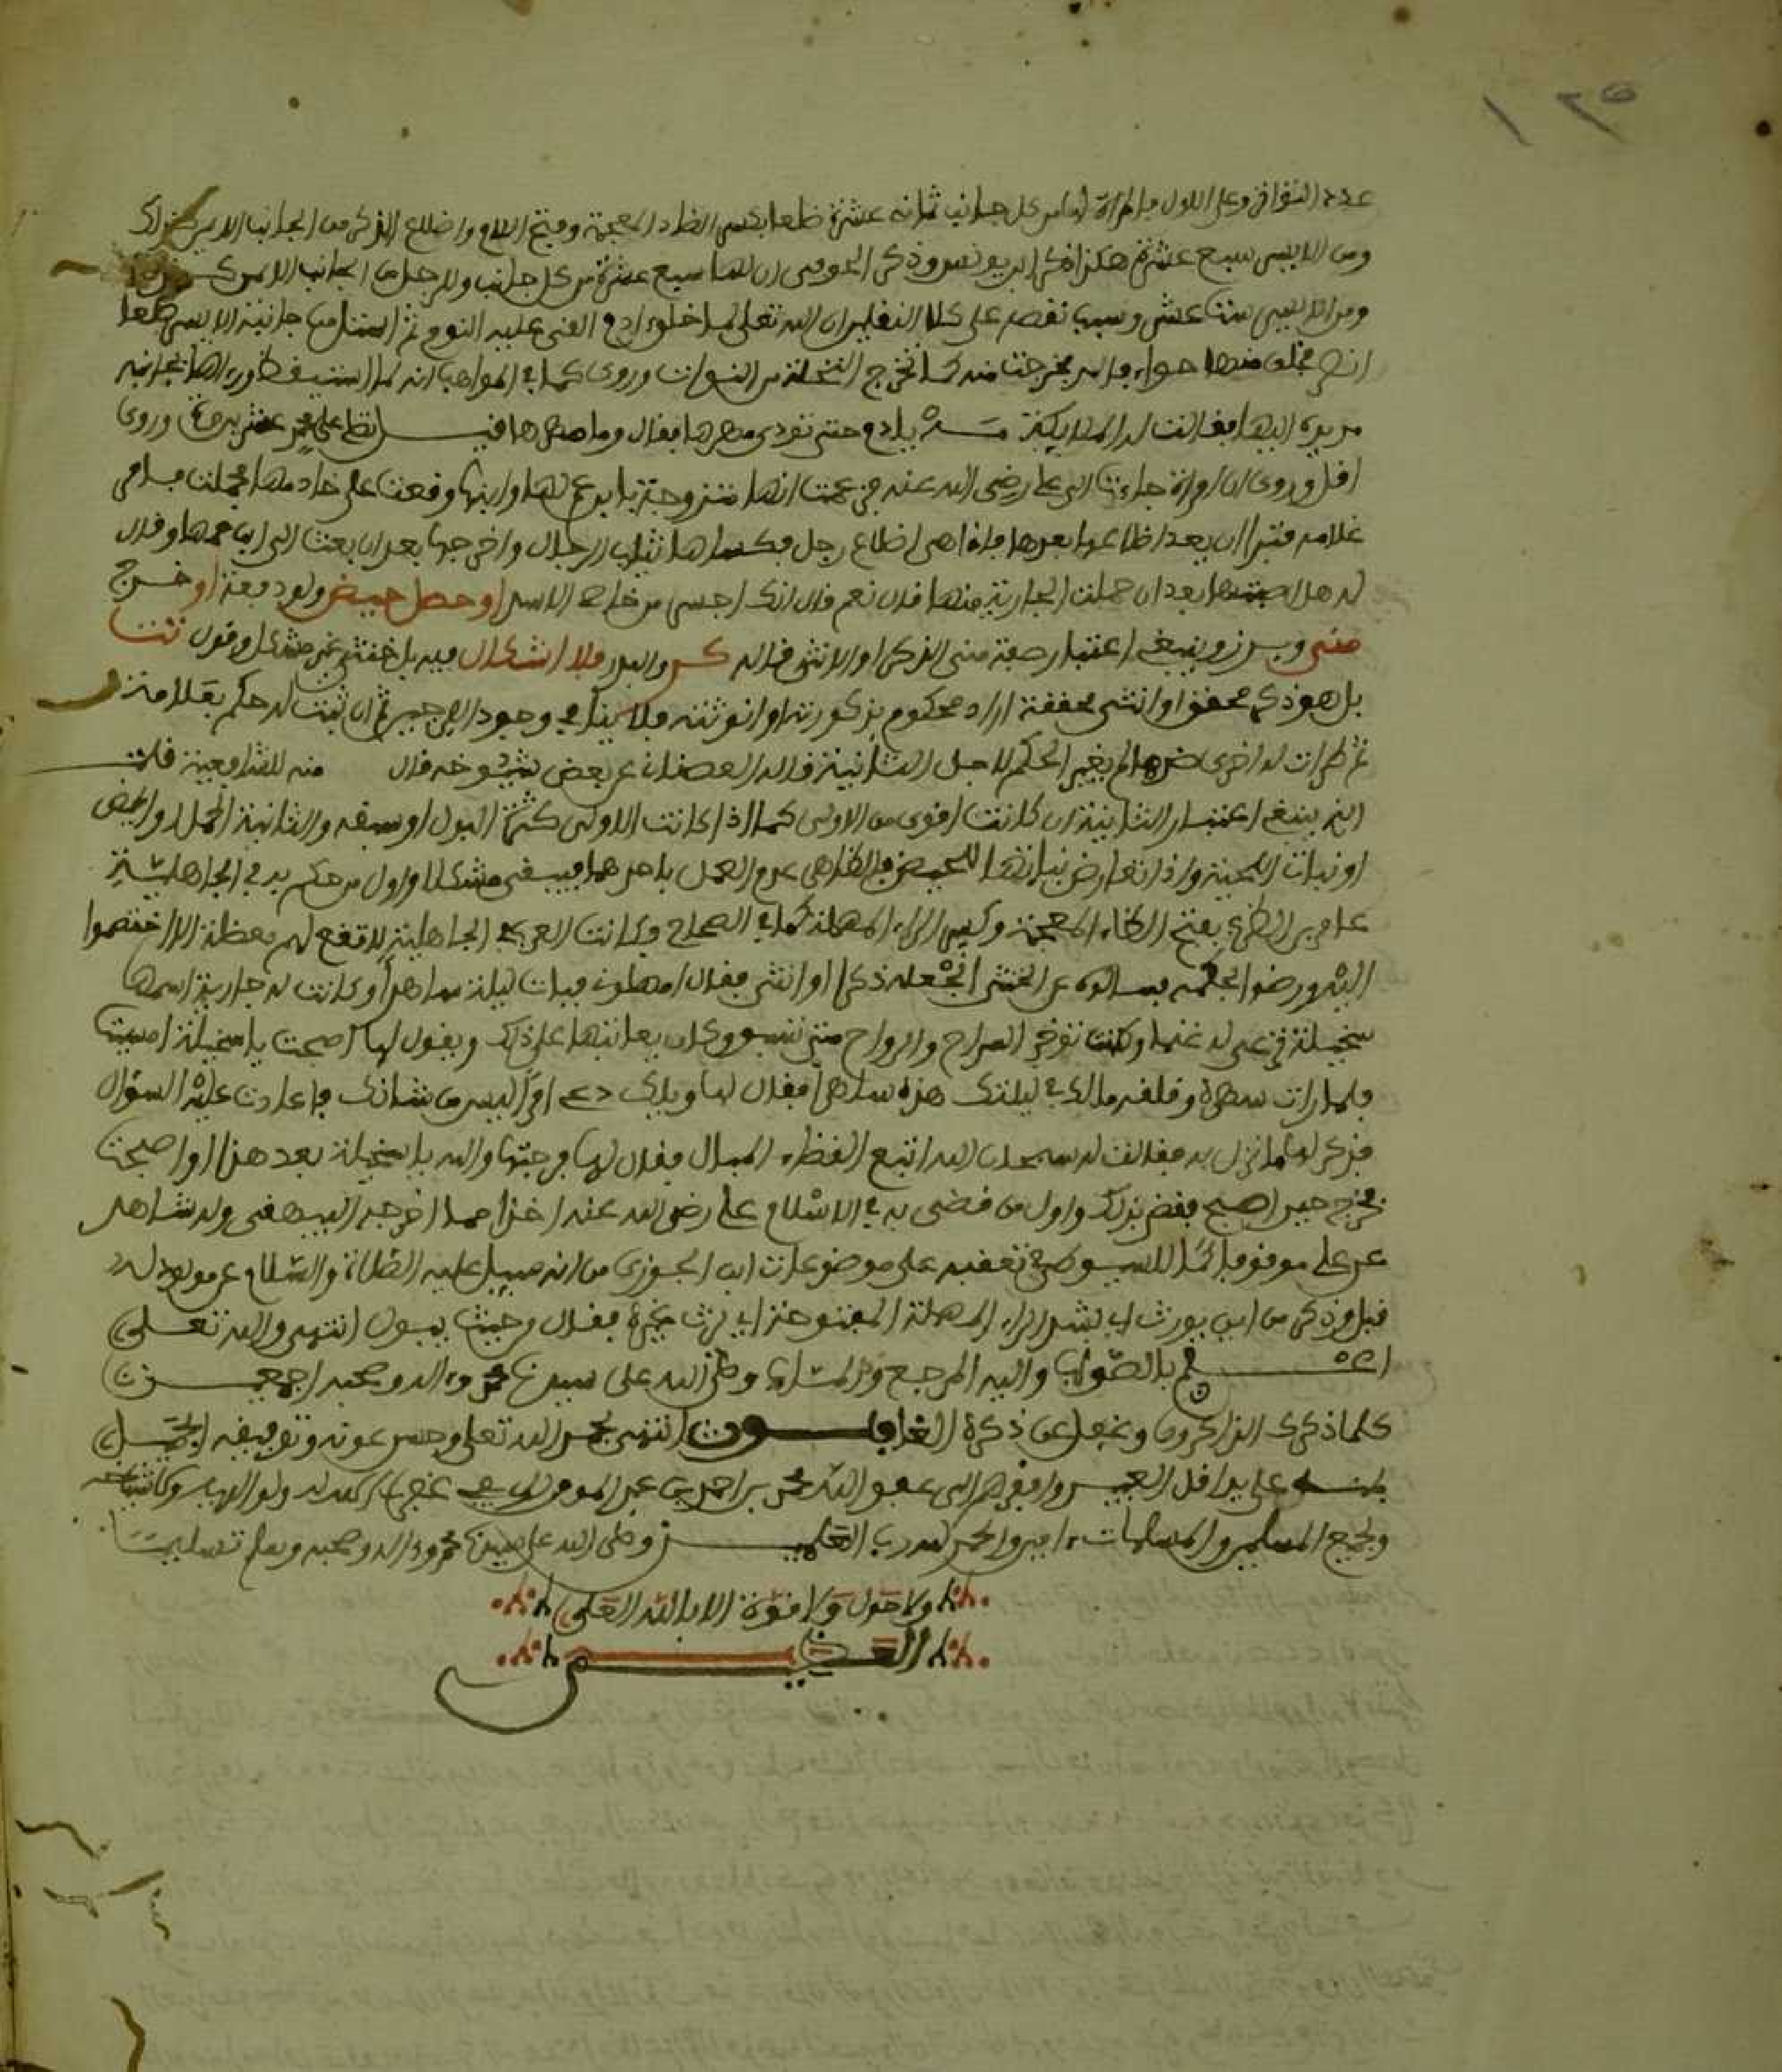 ١٢٥
عدد التوافق وعلى الاول فالمراة لها من كل جانب ثمانية عشرة ضلعا بكسر الضاد المعجمة وفتح اللام واضلاع الذكر من الجانب الايمن كذلك
ومن الايسر سبع عشرة هكذا ذكر ابن يونس وذكر الحوفي ان لها سبع عشرة من كل جانب وللرجل من الجانب الايمن كذلك
ومن الايسر ست عشر وسبب نقصه على كلا النقلين ان الله تعلى لما خلق ادم القى عليه النوم ثم استل من جانبه الايسر ضلعا
فخلق منها حواء فخرجت منه كما تخرج النخلة من النواة وروي كما في المواهب انه لما استيقظ وراها بجانبه
مد يده اليها فقالت له الملائكة مه يا ادم حتى تودي مهرها فقال وما مهرها قيل تصلي على محمد عشرين مرة وروي
اقل وروي ان امراة جاءت الى علي رضي الله عنه فزعمت انها متزوجة بابن عم لها وانها وقعت على خادمها فحملت فامر
غلامه قنبرا ان يعد اضلاعها فعدها فاذا هي اضلاع رجل فكساها ثياب الرجال واخرجها بعد ان بعث الى ابن عمها وقال
له هل اصبتها بعد ان حملت الجارية منها قال نعم قال انك اجسر من خاصي الاسد او حصل حيض ولو دفعة او خرج
مني وبرز وينبغي اعتبار صفة مني الذكر او الانثى قاله كر والبدر فلا اشكال فيه بل خنثى غير مشكل وقول تت
بل هو ذكر محقق او انثى محققة اراد محكوم بذكورته او انوثته فلا ينافي وجود الفرجين ثم ان ثبت له حكم بعلامة
ثم طرات له اخرى ضدها لم يغير الحكم لاجل الثانية قاله العصنوني عن بعض شيوخه قال منه للشافعية قلت
انه ينبغي اعتبار الثانية ان كانت اقوى من الاولى كما اذا كانت الاولى كثرة البول او سبقه والثانية الحمل او الحيض
او نبات اللحية واذا تعارض نباتها للحيض فالظاهر عدم العمل باحدهما فيبقى مشكلا واول من حكم به في الجاهلية
عامر بن الظرب بفتح الظاء المعجمة وكسر الراء المهملة كما في الصحاح وكانت العرب في الجاهلية لا تقع لهم معظلة الا اختصموا
اليه ورضوا بحكمه فسالوه عن الخنثى انجعله ذكرا او انثى فقال امهلوني فبات ليلة ساهرا وكانت له جارية اسمها
سخيلة ترعى له غنما وكانت توخر السراح والرواح حتى تسبق وكان يعاتبها على ذلك ويقول لها اصبحت يا سخيلة امسيت
فلما رات سهره وقلقه مالك في ليلتك هذه ساهرا فقال لها ويلك دعي امرا ليس من شانك فاعادت عليه السؤال
فذكر لها ما نزل به فقالت له سبحان الله اتبع القضاء المبال فقال لها فرجتها والله يا سخيلة بعد هذا او اصبحت
فخرج حين اصبح فقضى بذلك واول من قضى به في الاسلام علي رضي الله عنه اخذا مما اخرجه البيهقي وله شاهد
عن علي موقوفا كما للسيوطي في تعقبه على موضوعات ابن الجوزي من انه سيل عليه الصلاة والسلام عن مولود له
قبل وذكر من اين يورث اي بشد الراء المهملة المفتوحة اي يرث غيره فقال من حيث يبول انتهى والله تعلى
اعلم بالصواب واليه المرجع والمئاب وصلى الله على سيدنا محمد وءاله وصحبه اجمعين
كلما ذكرك الذاكرون وغفل عن ذكره الغافلون انتهى بحمد الله تعلى وحسن عونه وتوفيقه الجميل
على يد اقل العبيد وافقرهم الى عفو الله محمد بن احمد بن عبد المومن غفر الله له ولوالديه ولكاتبه
ولجميع المسلمين والمسلمات ءامين والحمد لله رب العلمين وصلى الله على سيدنا محمد وءاله وصحبه وسلم تسليما
ولا حول ولا قوة الا بالله العلي
العظيم